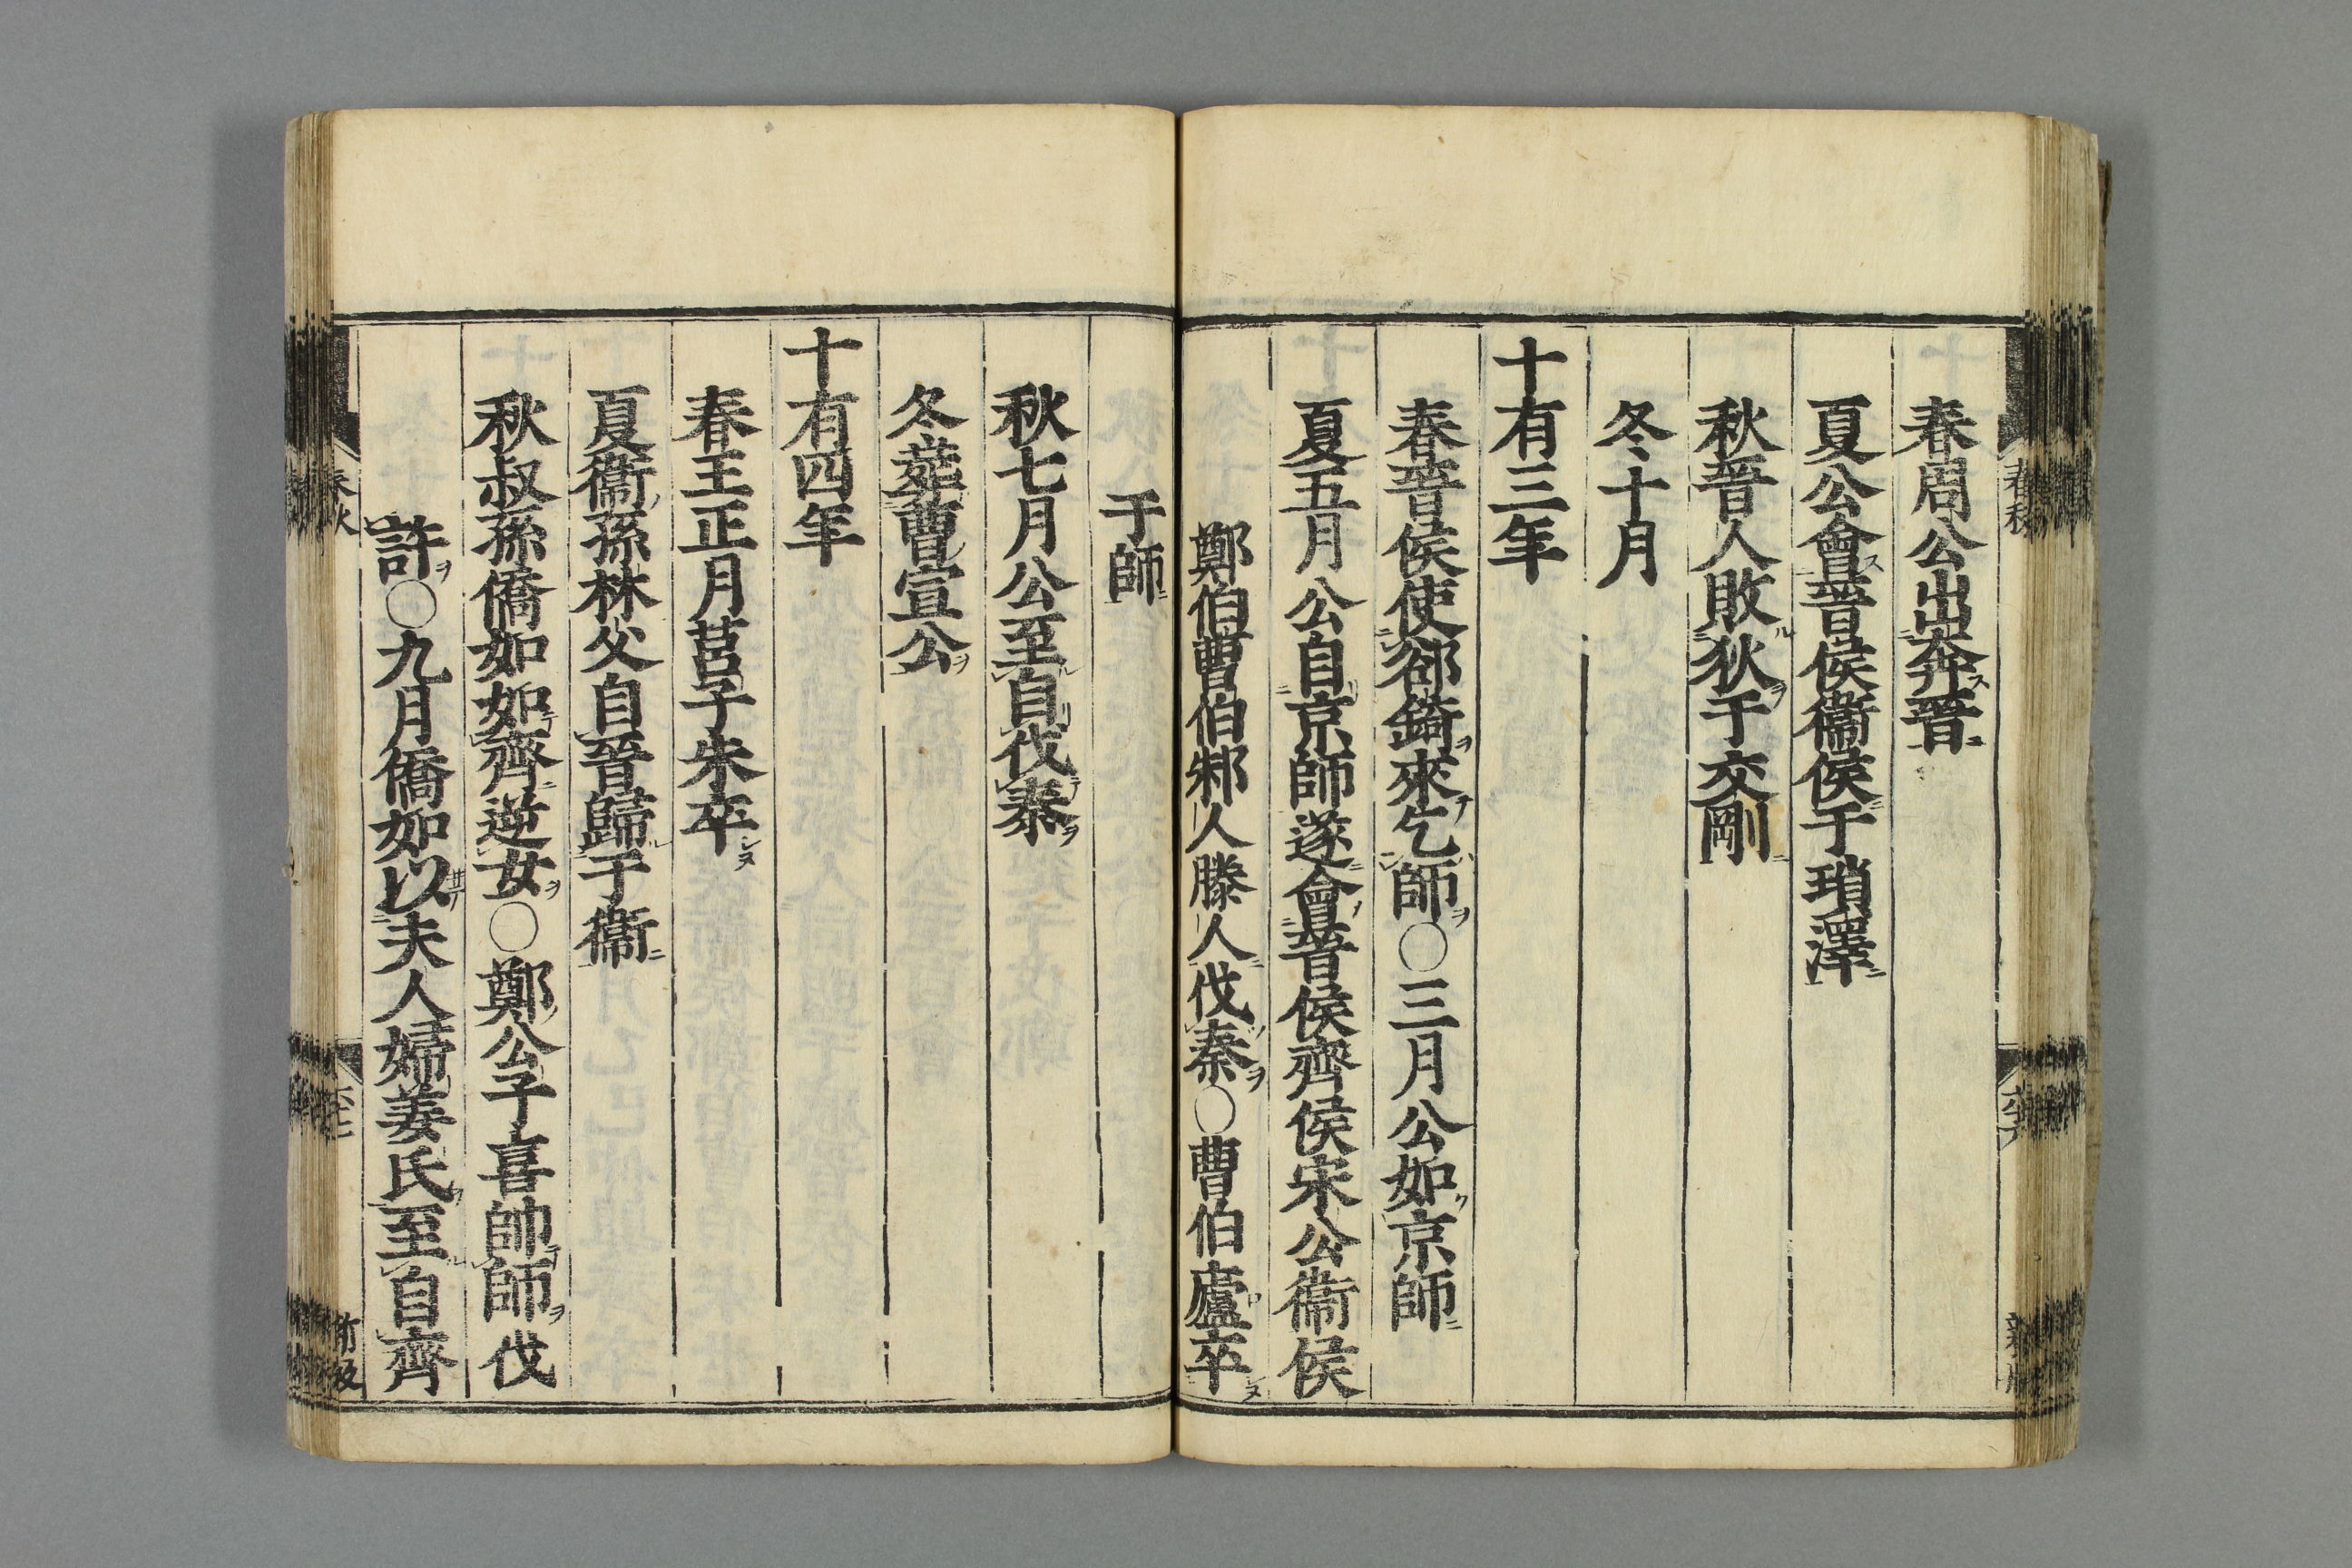 春周公出奔晉
夏公會晉侯衞侯于瑣澤
秋晉人敗狄于交剛
冬十月
十有三年
春晉侯使郤錡來乞師○三月公如京師
夏五月公自京師遂會晉侯齊侯宋公衞侯
鄭伯曹伯邾人滕人伐秦○曹伯廬卒
于師
秋七月公至自伐秦
冬葬曹宣公
十有四年
春王正月莒子朱卒
夏衞孫林父自晉歸于衞
秋叔孫僑如如齊逆女○鄭公子喜帥師伐
許○九月僑如以夫人婦姜氏至自齊
春秋